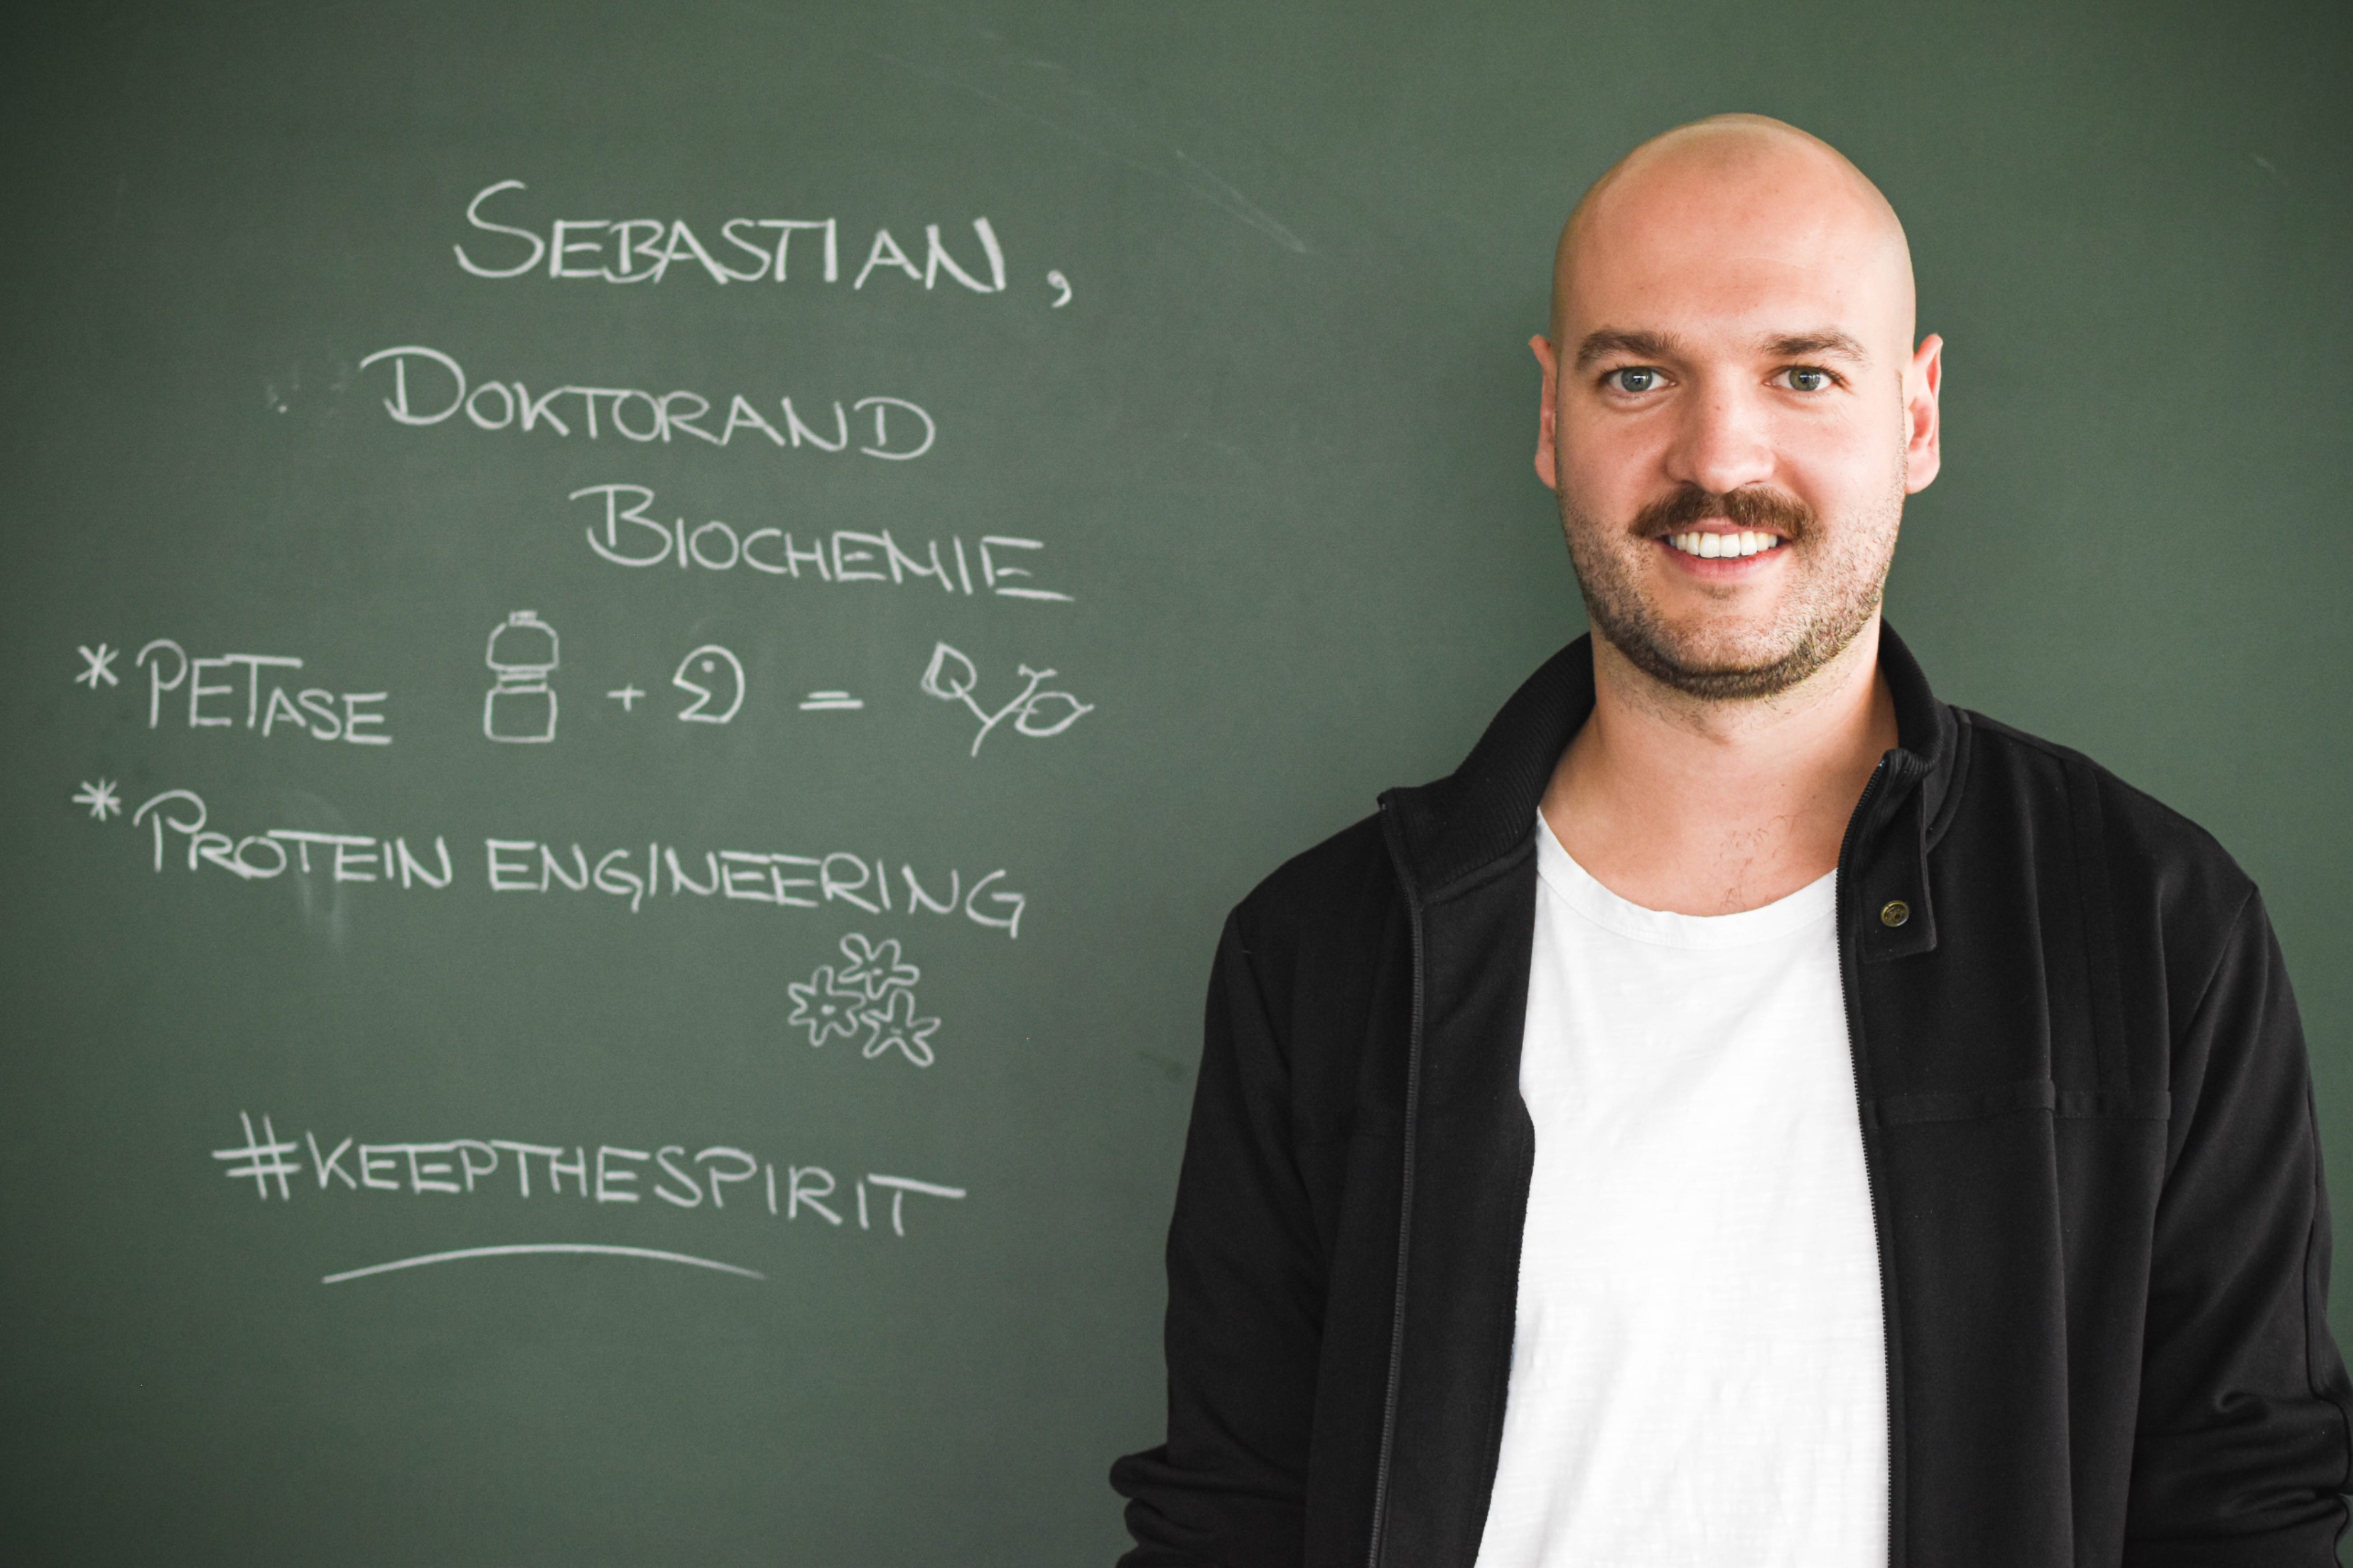 SEBASTIAN,
DOKTORAND
BIOCHEMIE
* PETASE + =
* PROTEIN ENGINEERING
#KEEPTHESPIRIT